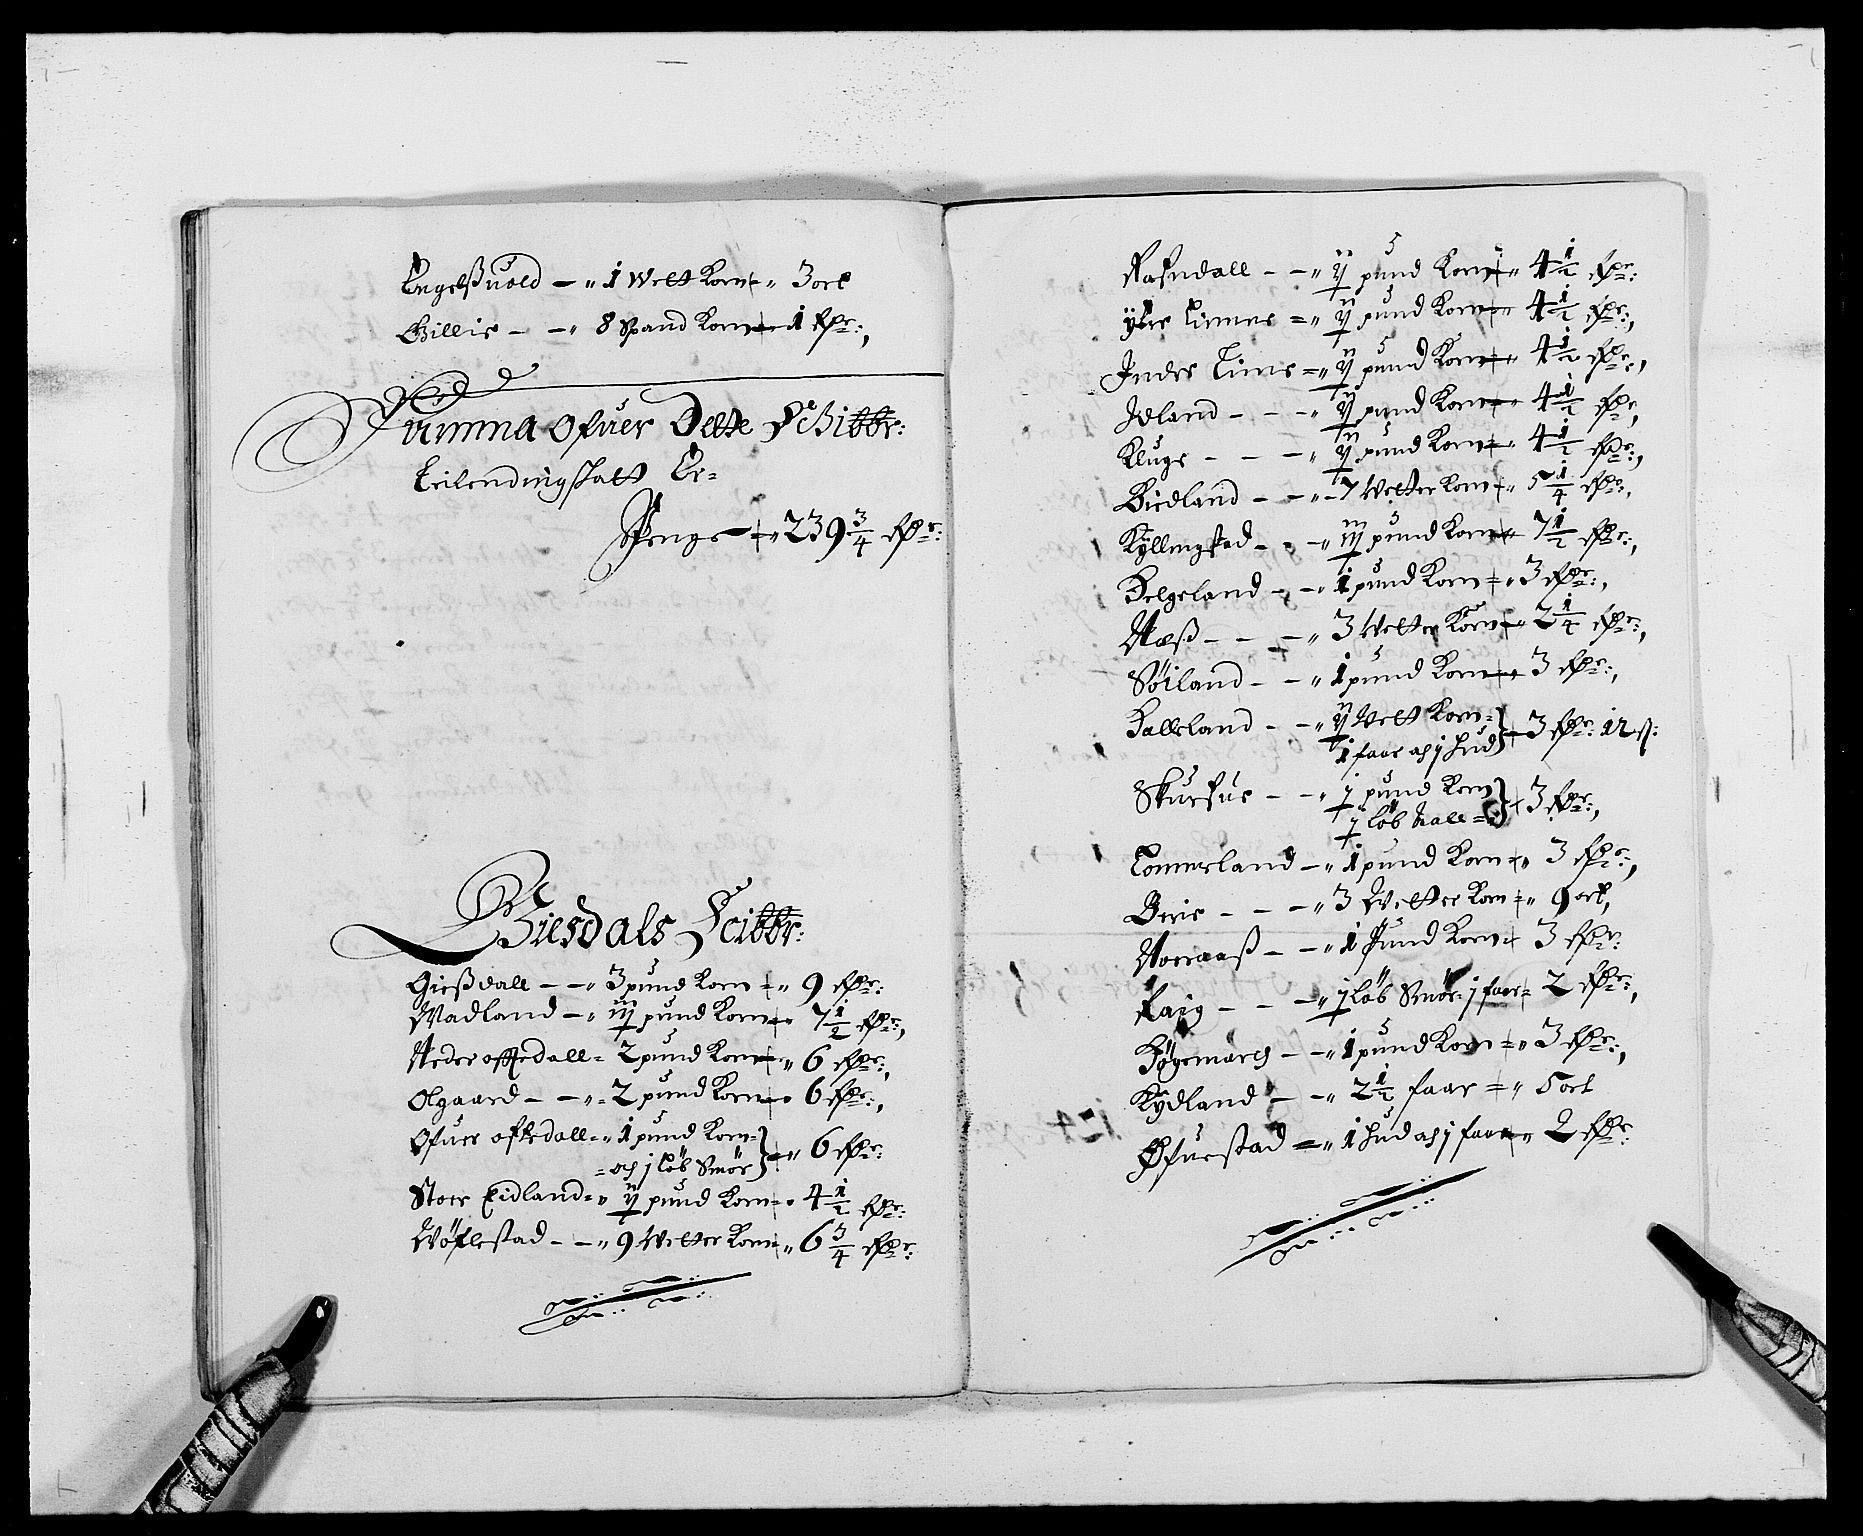 Engelßuold — „ 1 Wett Korn „ 3 ort
Gillie — — „ 8 Spand Korn — 1 rdr:,
Summa ofuer Dette Schibbr:
Leilendingskatt Er=
Penge — „ 239 3/4 rdr:
Giesdals Scibbr:
Gießdall — — „ 3 pund Korn = „ 9 rdr:
Madland — „ iij pund Korn „ 7 1/2 rdr:,
Neder offtedall = 2 pund Korn „ 6 rdr:,
Olgaard — — „ 2 pund Korn „ 6 rdr:,
Ofuer oftedall = „ 1 pund Korn =
= och j Löb Smör } „ 6 rdr:
Store Eidland = „ ij pund Korn „ 4 1/2 rdr:
Wöflestad — — „ 9 Wetter Korn „ 6 3/4 rdr:
Rafndall — — „ ij pund Korn „ 4 1/2 rdr:
ytre Limme = „ ij pund Korn „ 4 1/2 rdr:,
Indre Lime = „ ij pund Korn „ 4 1/2 rdr:,
Idland — — — „ ij pund Korn „ 4 1/2 rdr,
Kluge — — — „ ij pund Korn „ 4 1/2 rdr:,
Birdland — — „ 7 Wetter Korn „ 5 1/4 rdr:,
Kyllingstad — — „ iij pund Korn 7 1/2 rdr:,
Helgeland — — „ 1 pund Korn = „ 3 rdr:,
Næß — — — „ 3 Wetter Korn „ 2 1/4 rdr:,
Söiland — — „ 1 pund Korn 3 rdr:,
Halleland — — „ ij Wett Korn =
1 faar och j Hud } 3 rdr: 12 ß:
Skurfue — — „ j pund Korn
j löb Kall = } 3 rdr:,
Tommerland — „ 1 pund Korn „ 3 rdr:,
Berie — — — „ 3 Wetter Korn = „ 9 ort,
Noeraaß — — „ 1 pund Korn 3 rdr:
Raig — — — „ j Löb Smör = j faar = 2 rdr:,
Fögemarch — — „ 1 pund Korn = „ 3 rdr:,
Kydland — — „ 2 1/2 faar = „ 5 ort
Øfuestad = „ 1 Hud och j faar „ 2 rdr: